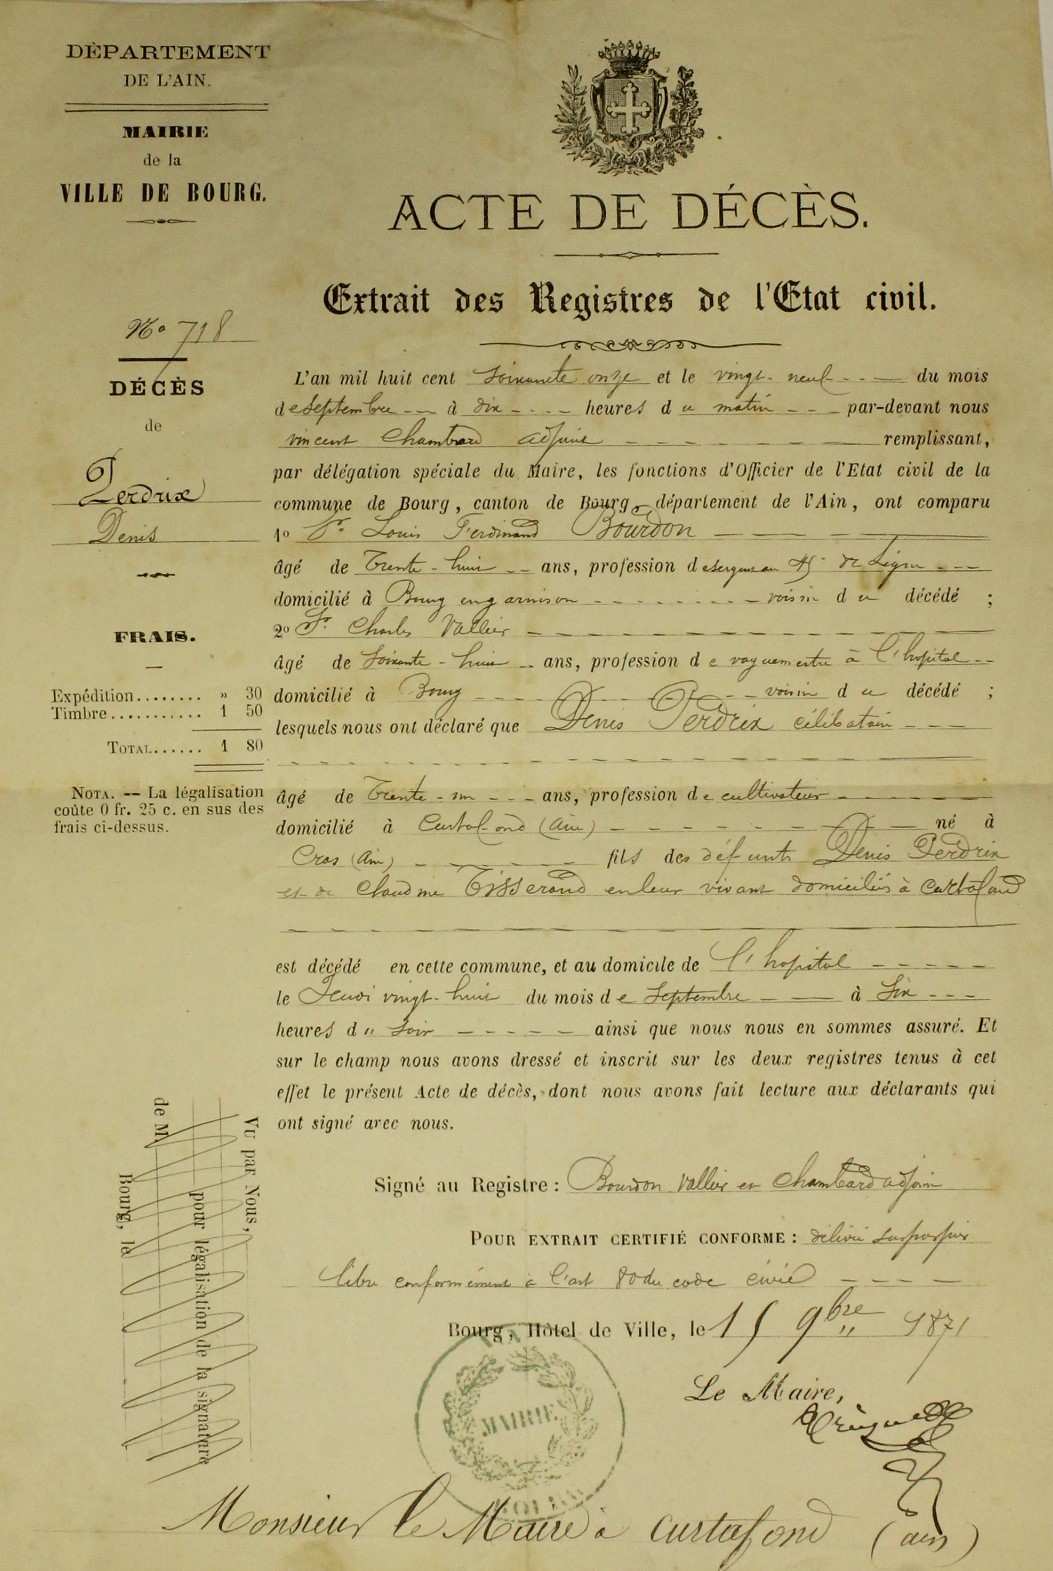 DÉPARTEMENT
DE L'AIN.
MAIRIE
de la
VILLE DE BOURG.
ACTE DE DÉCÈS.
Extrait des Registres de l'Etat civil.
No 718
DÉCÈS
de
Perdrix
Denis
FRAIS.
Expédition........ » 30
Timbre........... 1 50
TOTAL...... 1 80
NOTA. — La légalisation
coûte 0 fr. 25 c. en sus des
frais ci-dessus.
L'an mil huit cent soixante onze et le vingt-neuf du mois
de septembre à dix heures du matin par-devant nous
vincent Chambard adjoint remplissant,
par délégation spéciale du Maire, les fonctions d'Officier de l'Etat civil de la
commune de Bourg, canton de Bourg, département de l'Ain, ont comparu
1o Sr. Louis Ferdinand Bourdon
âgé de Trente-huit ans, profession de sergent au de Ligne
domicilié à Bourg en garnison voisin du décédé ;
2o Sr. Charles Vallier
âgé de soixante-huit ans, profession de vaguemestre à l'hopital
domicilié à Bourg voisin du décédé ;
lesquels nous ont déclaré que Denis Perdrix célibataire
âgé de Trente-un ans, profession de cultivateur
domicilié à Curtafond (Ain) né à
Cras (Ain) fils des défunts Denis Perdrix
et de Claudine Tisserand en leur vivant domiciliés à Curtafond
est décédé en cette commune, et au domicile de l'hopital
le Jeudi vingt-huit du mois de Septembre à Six
heures du soir ainsi que nous nous en sommes assuré. Et
sur le champ nous avons dressé et inscrit sur les deux registres tenus à cet
effet le présent Acte de décès, dont nous avons fait lecture aux déclarants qui
ont signé avec nous.
Signé au Registre : Bourdon Vallier et Chambard adjoint
POUR EXTRAIT CERTIFIÉ CONFORME : délivré sur papier
libre conformément à l'art 80 du code civil
Bourg, Hôtel de Ville, le 15 9bre 1871
Le Maire,
MAIRIE
Vu par Nous,
pour légalisation de la signature
de M.
Bourg, le
Monsieur le Maire à Curtafond (ain)